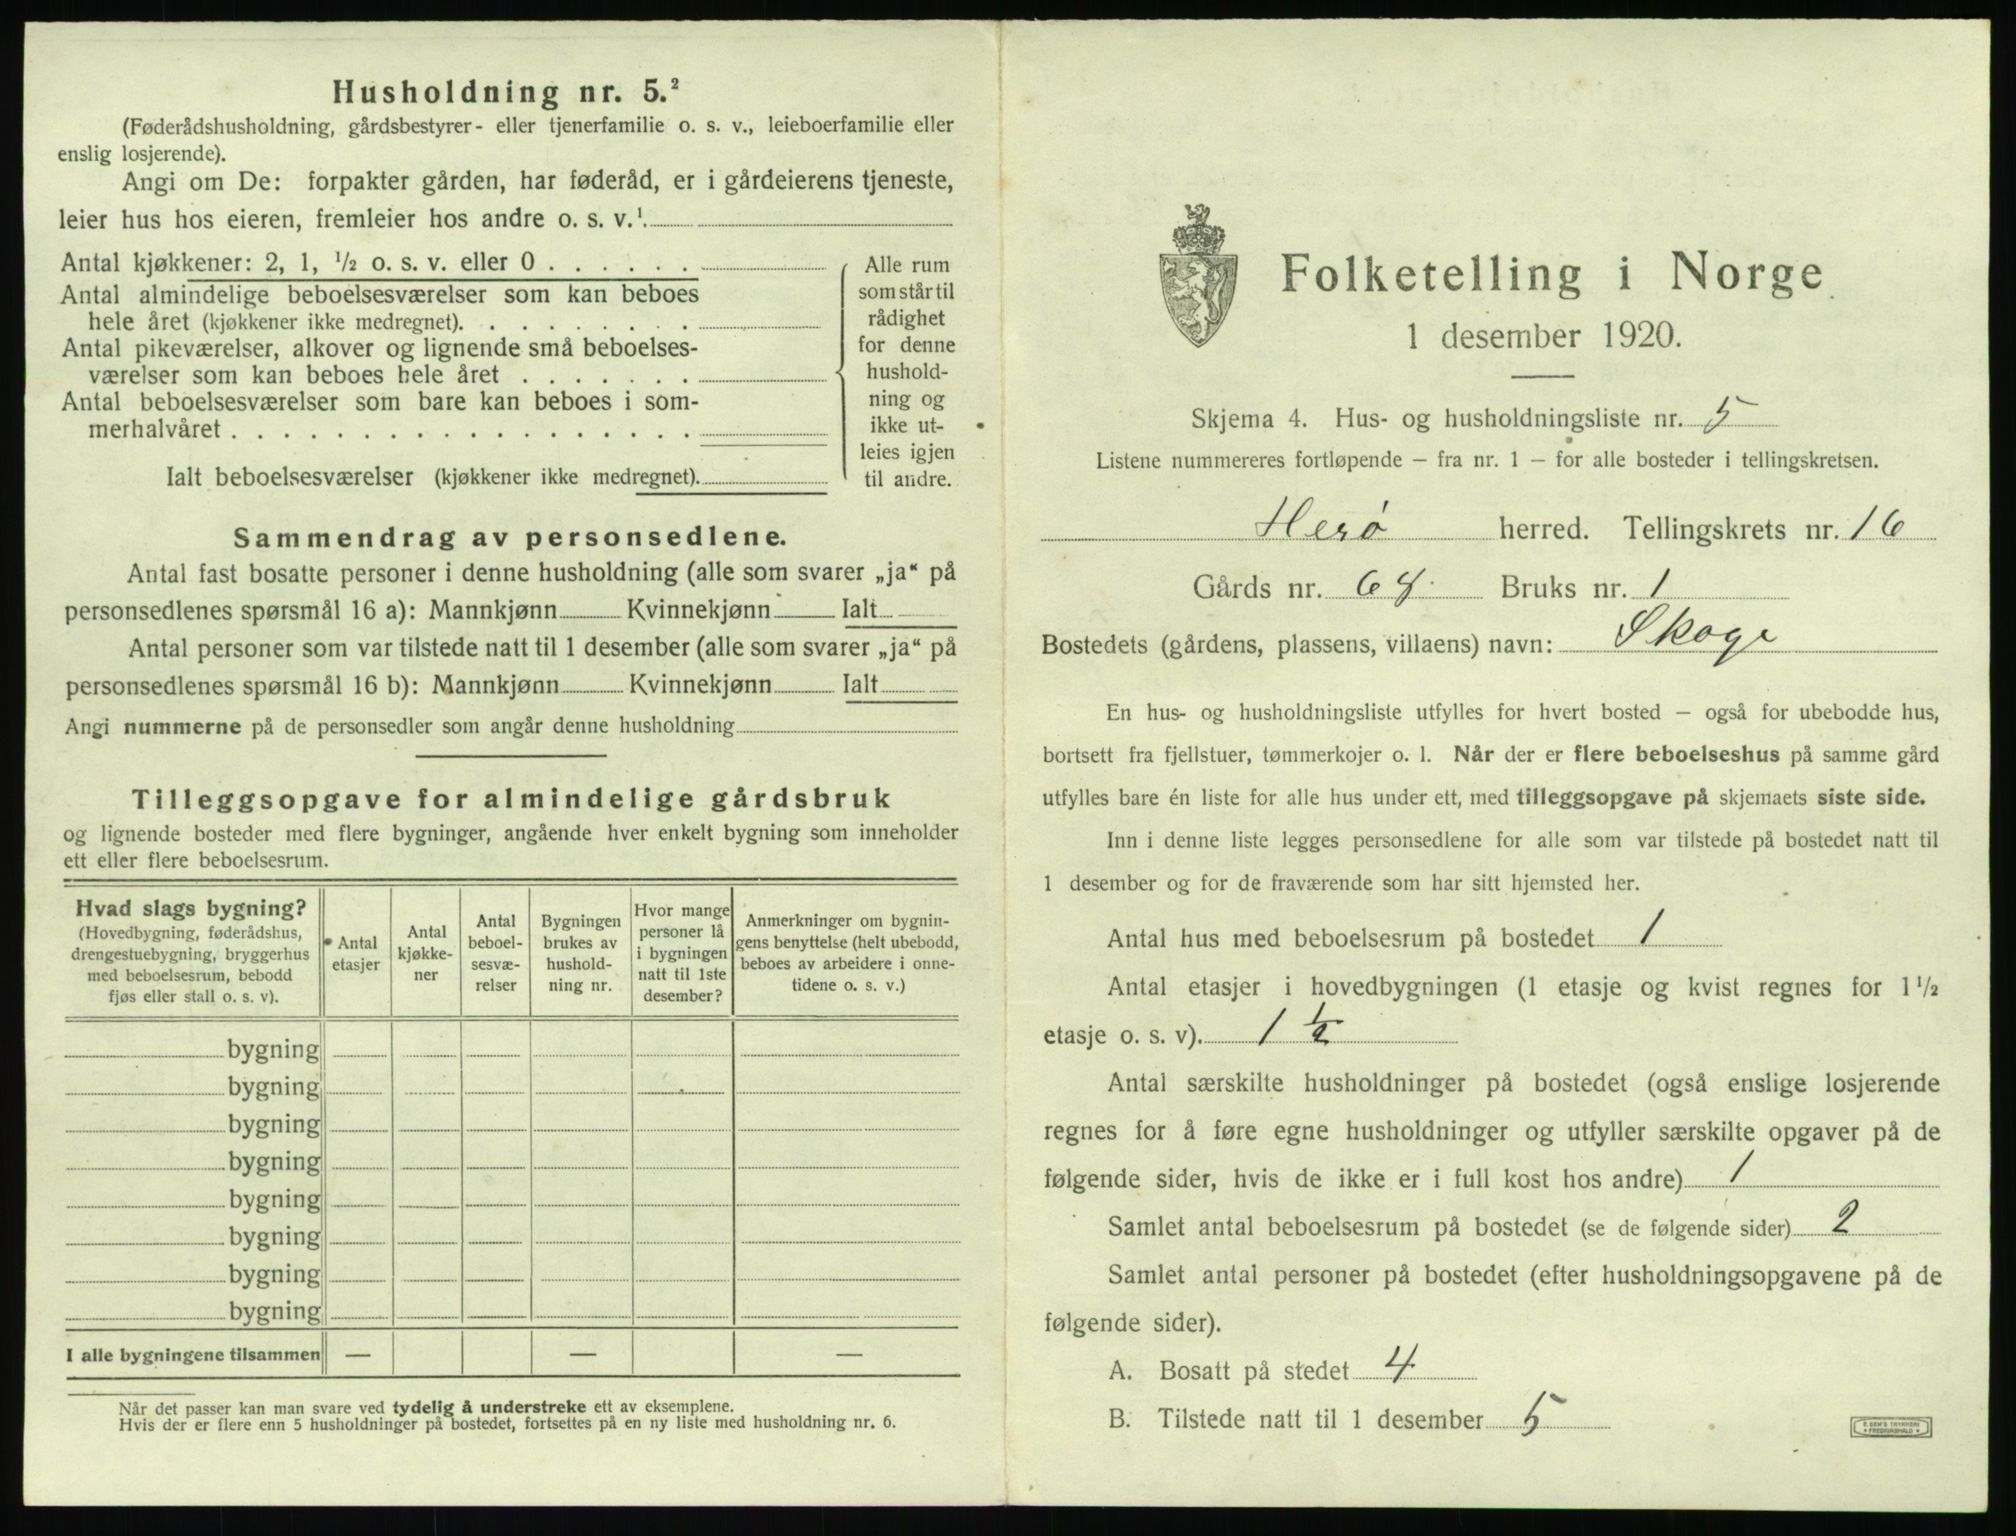 Husholdning nr. 5.²
(Føderådshusholdning, gårdsbestyrer- eller tjenerfamilie o. s. v., leieboerfamilie eller
enslig losjerende).
Angi om De: forpakter gården, har føderåd, er i gårdeierens tjeneste,
leier hus hos eieren, fremleier hos andre o. s. v.¹
Antal kjøkkener: 2, 1, ½ o. s. v. eller 0 . . . . . .
Antal almindelige beboelsesværelser som kan beboes
hele året (kjøkkener ikke medregnet). . . . . . . . .
Antal pikeværelser, alkover og lignende små beboelses-
værelser som kan beboes hele året . . . . . . .
Antal beboelsesværelser som bare kan beboes i som-
merhalvåret . . . . . . . . . . . . . . . . . .
Ialt beboelsesværelser (kjøkkener ikke medregnet).
Alle rum
som står til
rådighet
for denne
hushold-
ning og
ikke ut-
leies igjen
til andre.
Sammendrag av personsedlene.
Antal fast bosatte personer i denne husholdning (alle som svarer „ja“ på
personsedlenes spørsmål 16 a): Mannkjønn Kvinnekjønn Ialt
Antal personer som var tilstede natt til 1 desember (alle som svarer „ja“ på
personsedlenes spørsmål 16 b): Mannkjønn Kvinnekjønn Ialt
Angi nummerne på de personsedler som angår denne husholdning
Tilleggsopgave for almindelige gårdsbruk
og lignende bosteder med flere bygninger, angående hver enkelt bygning som inneholder
ett eller flere beboelsesrum.
Hvad slags bygning?
(Hovedbygning, føderådshus,
drengestuebygning, bryggerhus
med beboelsesrum, bebodd
fjøs eller stall o. s. v).
Antal
etasjer
Antal
kjøkke-
ner
Antal
beboel-
sesvæ-
relser
Bygningen
brukes av
hushold-
ning nr.
Hvor mange
personer lå
i bygningen
natt til 1ste
desember?
Anmerkninger om bygnin-
gens benyttelse (helt ubebodd,
beboes av arbeidere i onne-
tidene o. s. v.)
bygning
bygning
bygning
bygning
bygning
bygning
bygning
bygning
I alle bygningene tilsammen — — —
Når det passer kan man svare ved tydelig å understreke ett av eksemplene.
Hvis der er flere enn 5 husholdninger på bostedet, fortsettes på en ny liste med husholdning nr. 6.
Folketelling i Norge
1 desember 1920.
Skjema 4. Hus- og husholdningsliste nr. 5
Listene nummereres fortløpende — fra nr. 1 — for alle bosteder i tellingskretsen.
Herø herred. Tellingskrets nr. 16
Gårds nr. 68. Bruks nr. 1
Bostedets (gårdens, plassens, villaens) navn: Skoge
En hus- og husholdningsliste utfylles for hvert bosted — også for ubebodde hus,
bortsett fra fjellstuer, tømmerkojer o. l. Når der er flere beboelseshus på samme gård
utfylles bare én liste for alle hus under ett, med tilleggsopgave på skjemaets siste side.
Inn i denne liste legges personsedlene for alle som var tilstede på bostedet natt til
1 desember og for de fraværende som har sitt hjemsted her.
Antal hus med beboelsesrum på bostedet 1
Antal etasjer i hovedbygningen (1 etasje og kvist regnes for 1 ½
etasje o. s. v). 1 ½
Antal særskilte husholdninger på bostedet (også enslige losjerende
regnes for å føre egne husholdninger og utfyller særskilte opgaver på de
følgende sider, hvis de ikke er i full kost hos andre) 1
Samlet antal beboelsesrum på bostedet (se de følgende sider) 2
Samlet antal personer på bostedet (efter husholdningsopgavene på de
følgende sider).
A. Bosatt på stedet 4
B. Tilstede natt til 1 desember 5
E. SEM'S TRYKKERI
FREDRIKSHALD